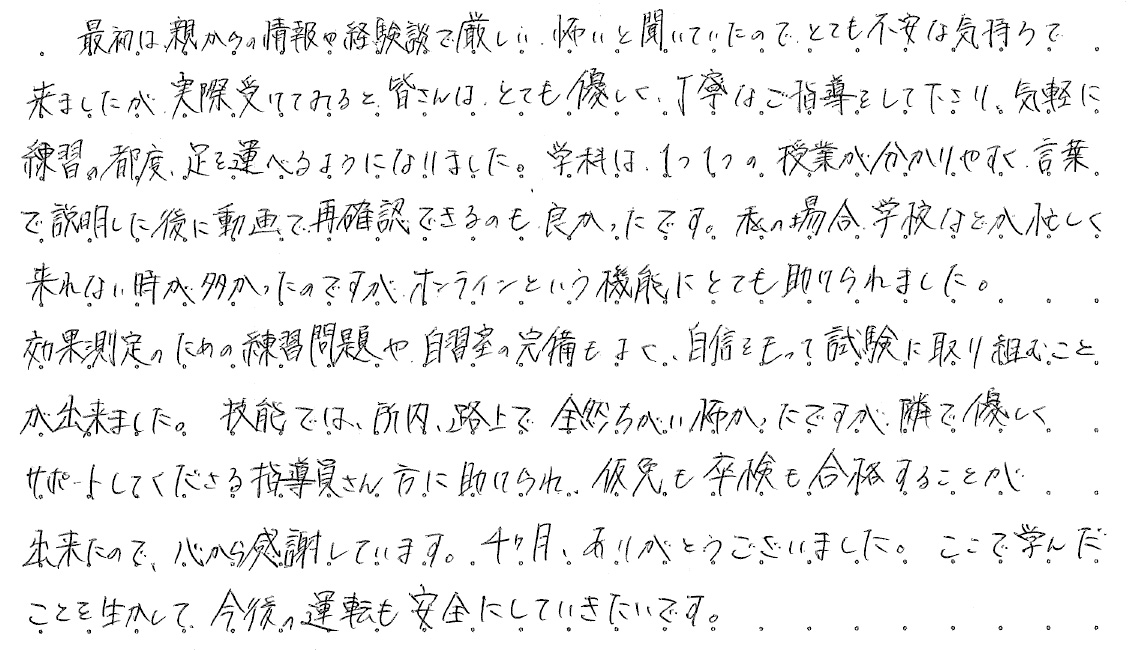 最初は親からの情報や経験談で厳しい、怖いと聞いていたので、とても不安な気持ちで
来ましたが、実際受けてみると、皆さんは、とても優しく、丁寧なご指導をして下さり、気軽に
練習の都度、足を運べるようになりました。学科は、1つ1つの授業が分かりやすく、言葉
で説明した後に動画で再確認できるのも良かったです。私の場合、学校などが忙しく
来れない時が多かったのですが、オンラインという機能にとても助けられました。
効果測定のための練習問題や自習室の完備もよく、自信をもって試験に取り組むこと
が出来ました。技能では、所内、路上で全然ちがい怖かったですが、隣で優しく
サポートしてくださる指導員さん方に助けられ、仮免も卒検も合格することが
出来たので、心から感謝しています。4ヶ月、ありがとうございました。ここで学んだ
ことを生かして、今後の運転も安全にしていきたいです。